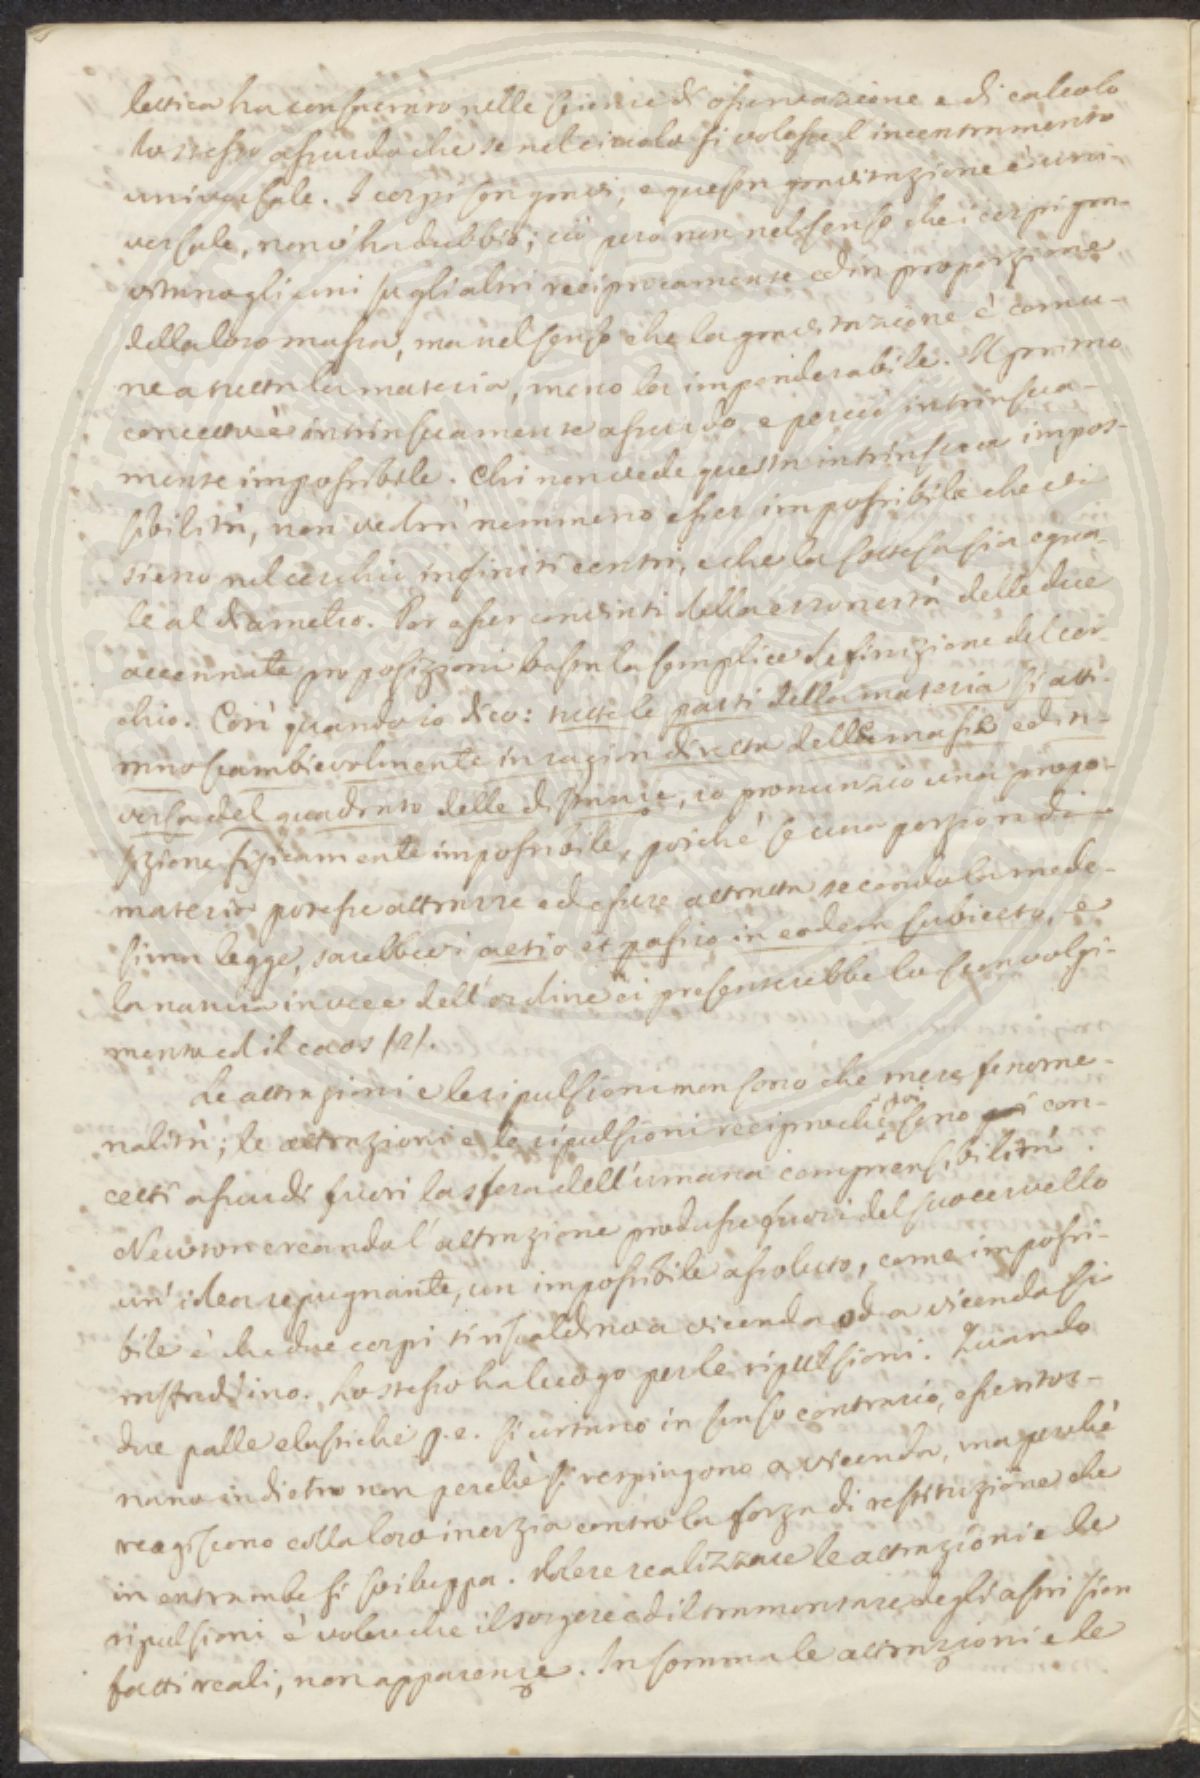 lettica ha consacrato nelle scienze di osservazione e di calcolo
lo stesso assurdo che se nel circolo si volesse l'incentramento
universale. I corpi son gravi, e questa gravitazione è uni-
versale, non v'ha dubbio; ciò però non nel senso che i corpi gra-
vitano gli uni su gli altri reciprocamente ed in proporzione
della loro massa, ma nel senso che la gravitazione è comu-
ne a tutta la materia, meno la imponderabile. Il primo
concetto è intrinsecamente assurdo e perciò intrinseca-
mente impossibile. Chi non vede questa intrinseca impos-
sibilità, non vedrà nemmeno esser impossibile che vi
sieno nel cerchio infiniti centri, e che la sottesa sia egua-
le al diametro. Per esser convinti della erroneità delle due
accennate proposizioni basta la semplice definizione del cer-
chio. Così quando io dico: tutte le parti della materia si atti-
rano scambievolmente in ragion diretta delle masse ed in-
versa del quadrato delle distanze, io pronunzio una propo-
sizione fisicamente impossibile, poichè se una porzion di
materia potesse attrarre ed essere attratta secondo la mede-
sima legge, sarebbevi actio et passio in eodem subiecto, e
la natura invece dell'ordine ci presenterebbe lo sconvolgi-
mento ed il caos (2).
Le attrazioni e le ripulsioni non sono che mere fenome-
nalità; le attrazioni e le ripulsioni reciproche poi sono con-
cetti assurdi fuori la sfera dell'umana comprensibilità.
Newton creando l'attrazione produsse fuori del suo cervello
un'idea repugnante, un impossibile assoluto, come impossi-
bile è che due corpi si riscaldino a vicenda od a vicenda si
raffreddino. Lo stesso ha luogo per le ripulsioni. Quando
due palle elastiche p.e. si urtano in senso contrario, esse ritor-
nano indietro non perchè si respingono a vicenda, ma perchè
reagiscono colla loro inerzia contro la forza di restituzione che
in entrambe si sviluppa. Volere realizzare le attrazioni e le
ripulsioni è volere che il sorgere ed il tramontare degli astri sien
fatti reali, non apparenze. In somma le attrazioni e le